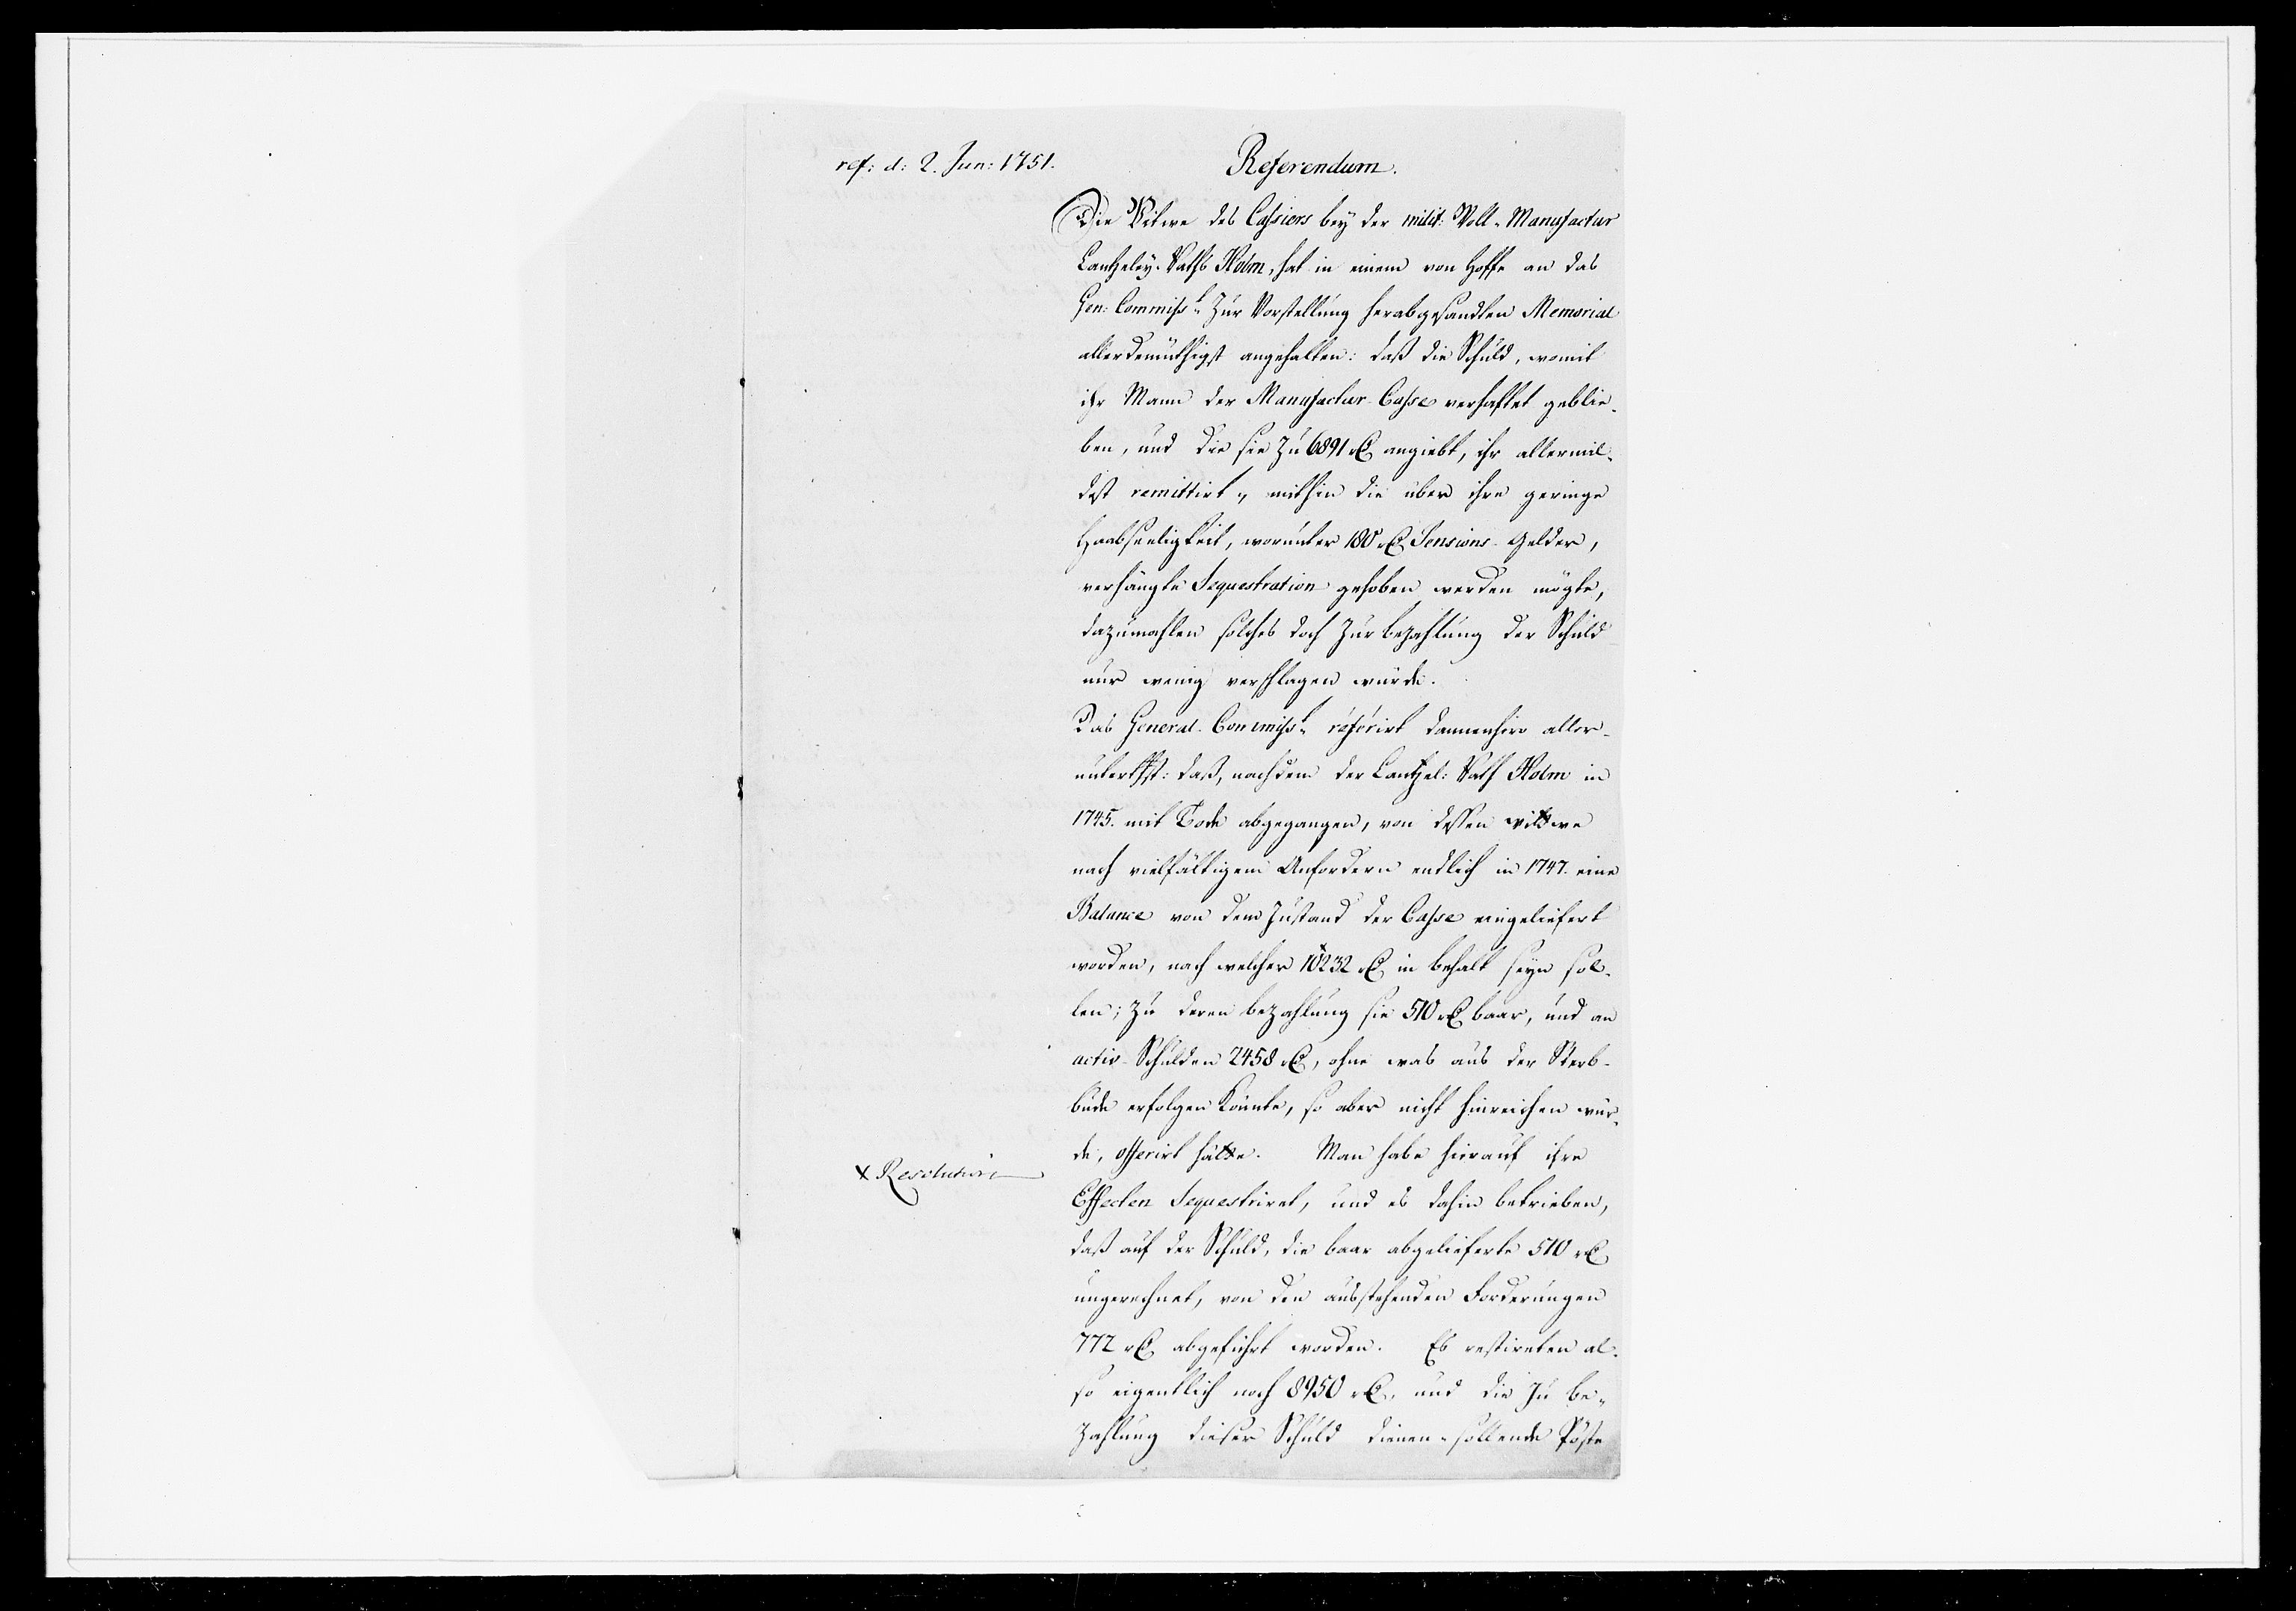 ref: d: 2. Jun: 1751.
Referendum.
Die Witwe des Cassiers bey der milit: Woll-Manufactur
Cantzeley-Raths Holm, hat in einem von Hoffe an das
Gen: Commiss.t zur Vorstellung herabgesandten Memorial
allerdemüthigst angehalten: daß die Schuld, womit
ihr Mann der Manufactur-Casse verhaftet geblie-
ben, und die sie zu 6891 rC angiebt, ihr allermil-
dest remittirt, mithin die über ihre geringe
Haabseeligkeit, worunter 180 rC Pensions-Gelder,
verhängte Sequestration gehoben werden mögte,
dazumahlen solches doch zur bezahlung der Schuld
nur wenig verschlagen würde.
Das General-Commiss.t referirt dannenhero aller-
unterthst: daß, nachdem der Cantzel: Rath Holm in
1745. mit Tode abgegangen, von dessen wittwe
nach vielfältigem Anfordern endlich in 1747. eine
Balance von dem Zustand der Casse eingeliefert
worden, nach welcher 10232 rC in behalt seyn sol-
len; zu deren bezahlung sie 510 rC baar, und an
activ-Schulden 2458 rC, ohne was aus der Sterb-
bude erfolgen könnte, so aber nicht hinreichen wür-
de, offerirt hätte. Man habe hierauf ihre
x Resolution
Effecten Sequestriret, und es dahin betrieben,
daß auf der Schuld, die baar abgelieferte 510 rC
ungerechnet, von den ausstehenden Forderungen
772 rC abgeführt worden. Es restireten al-
so eigentlich noch 8950 rC, und die zu be-
zahlung dieser Schuld dienen-sollende Pöste